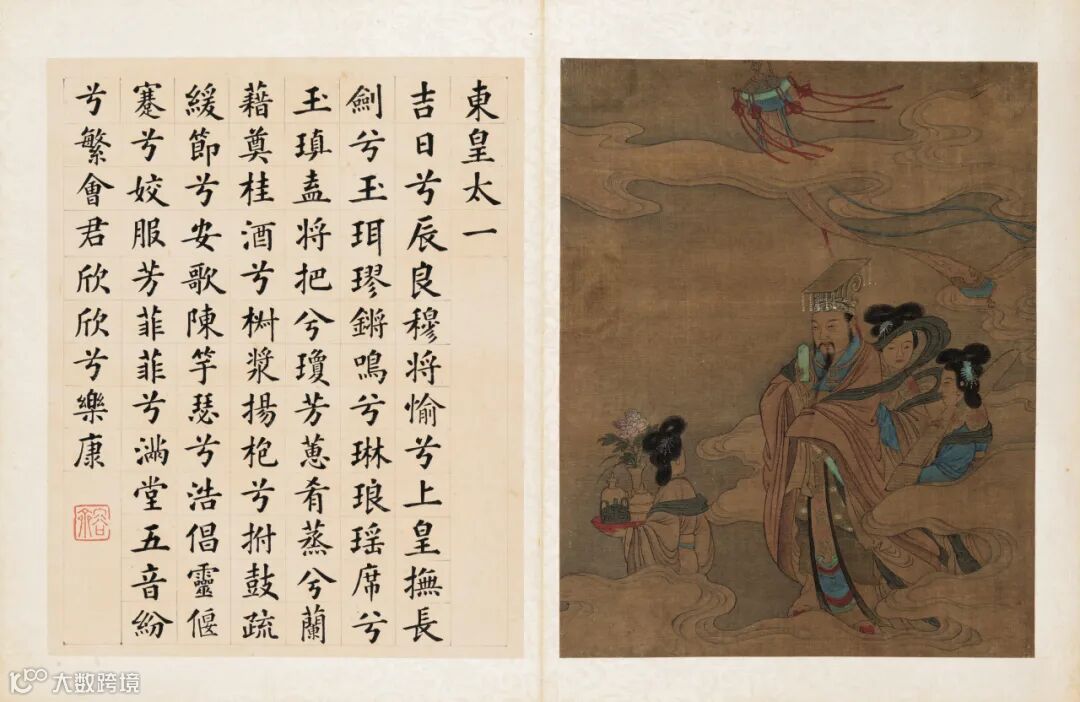 東皇太一
吉日兮辰良穆将愉兮上皇撫長
劍兮玉珥璆鏘鳴兮琳琅瑶席兮
玉瑱盍将把兮瓊芳蕙肴蒸兮蘭
藉奠桂酒兮椒漿揚枹兮拊鼓疏
緩節兮安歌陳竽瑟兮浩倡靈偃
蹇兮姣服芳菲菲兮滿堂五音紛
兮繁會君欣欣兮樂康
大数跨境